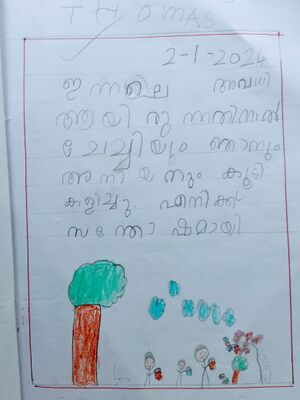 THOMAS
2-1-2024
ഇന്നലെ അവധി
ആയിരുന്നതിനാൽ
ചേച്ചിയും ഞാനും
അനിയനും കൂടി
കളിച്ചു. എനിക്ക്
സന്തോഷമായി